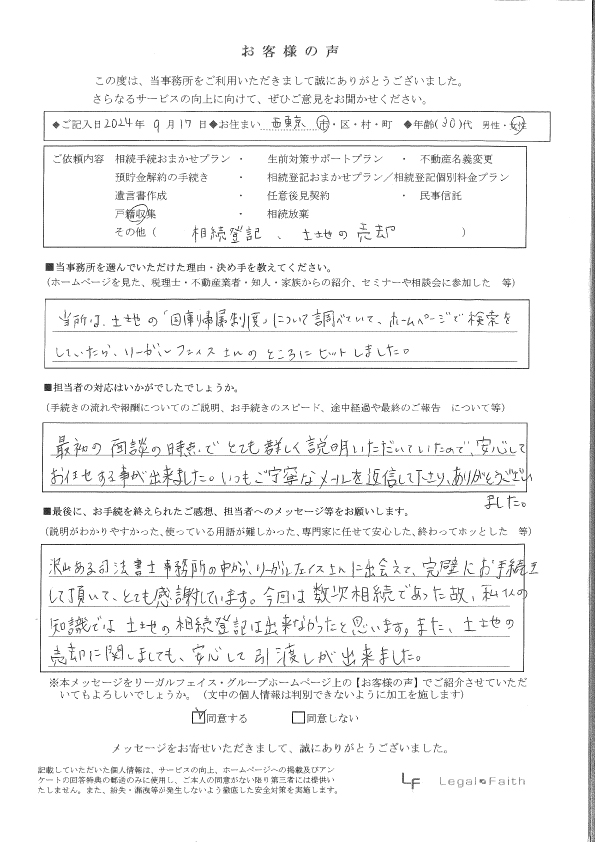 お客様の声
この度は、当事務所をご利用いただきまして誠にありがとうございました。
さらなるサービスの向上に向けて、ぜひご意見をお聞かせください。
◆ご記入日2024年 9月17日◆お住まい 西東京 市・区・村・町 ◆年齢(30)代 男性・女性
ご依頼内容 相続手続おまかせプラン ・ 生前対策サポートプラン ・ 不動産名義変更
預貯金解約の手続き ・ 相続登記おまかせプラン/相続登記個別料金プラン
遺言書作成 ・ 任意後見契約 ・ 民事信託
戸籍収集 ・ 相続放棄
その他( 相続登記、土地の売却 )
■当事務所を選んでいただけた理由・決め手を教えてください。
(ホームページを見た、税理士・不動産業者・知人・家族からの紹介、セミナーや相談会に参加した 等)
当所は、土地の「国庫帰属制度」について調べていて、ホームページで検索を
していたら、リーガルフェイスさんのところにヒットしました。
■担当者の対応はいかがでしたでしょうか。
(手続きの流れや報酬についてのご説明、お手続きのスピード、途中経過や最終のご報告 について等)
最初の面談の時点でとても詳しく説明いただいていたので、安心して
お任せする事が出来ました。いつもご丁寧なメールを返信して下さり、ありがとうござい
ました。
■最後に、お手続を終えられたご感想、担当者へのメッセージ等をお願いします。
(説明がわかりやすかった、使っている用語が難しかった、専門家に任せて安心した、終わってホッとした 等)
沢山ある司法書士事務所の中から、リーガルフェイスさんに出会えて、完璧にお手続を
して頂いて、とても感謝しています。今回は数次相続であった故、私の
知識では土地の相続登記は出来なかったと思います。また、土地の
売却に関しましても、安心して引渡しが出来ました。
※本メッセージをリーガルフェイス・グループホームページ上の【お客様の声】でご紹介させていただ
いてもよろしいでしょうか。(文中の個人情報は判別できないように加工を施します)
☑同意する □同意しない
メッセージをお寄せいただきまして、誠にありがとうございました。
記載していただいた個人情報は、サービスの向上、ホームページへの掲載及びアン
ケートの回答特典の郵送のみに使用し、ご本人の同意がない限り第三者には提供い
たしません。また、紛失・漏洩等が発生しないよう徹底した安全対策を実施します。
LF Legal Faith